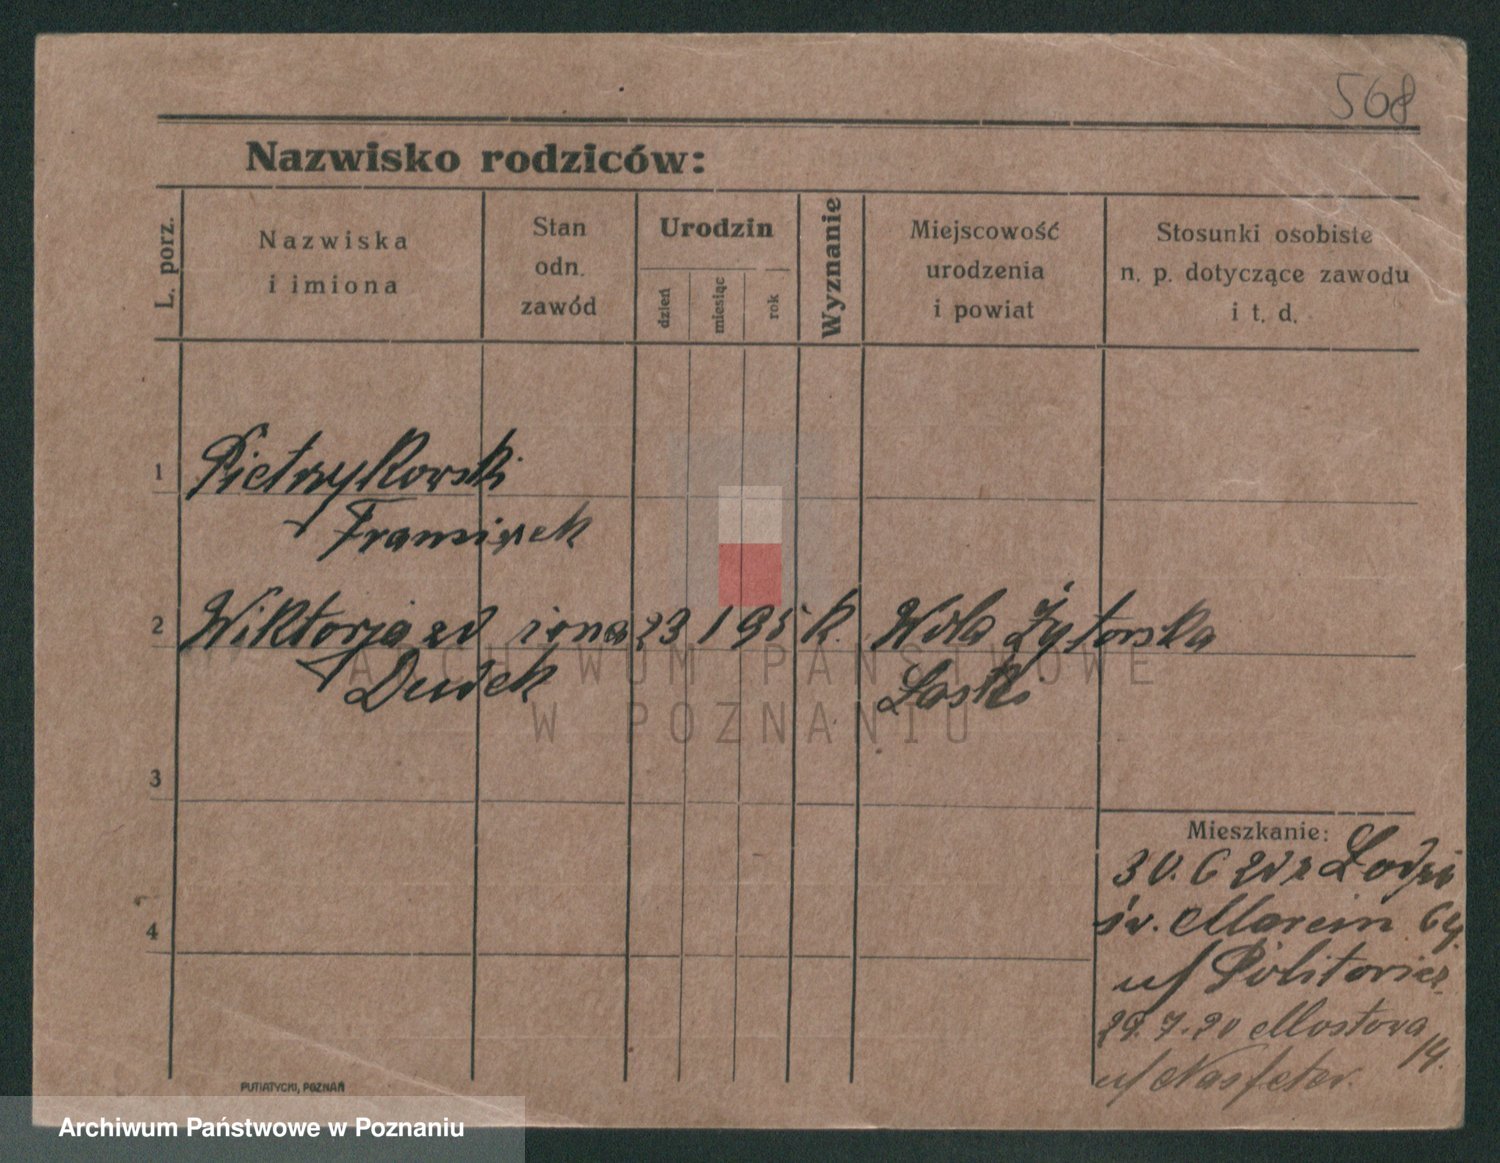 568
Nazwisko rodziców:
L. porz.
Nazwiska
i imiona
Stan
odn.
zawód
Urodzin
dzień
miesiąc
rok
Wyznanie
Miejscowość
urodzenia
i powiat
Stosunki osobiste
n. p. dotyczące zawodu
i t. d.
1 Pietrzykowski
Franciszek
2 Wiktorja zd żona 23 1 95 k. Wola Żytowska
Dudek Laski
3
4
Mieszkanie:
30. 6 20 z Łodzi
św. Marcin 64
u/
29. 7. 20 Mostowa
14.
u/
PUTIATYCKI, POZNAŃ
ARCHIWUM PAŃSTWOWE
W POZNANIU
Archiwum Państwowe w Poznaniu